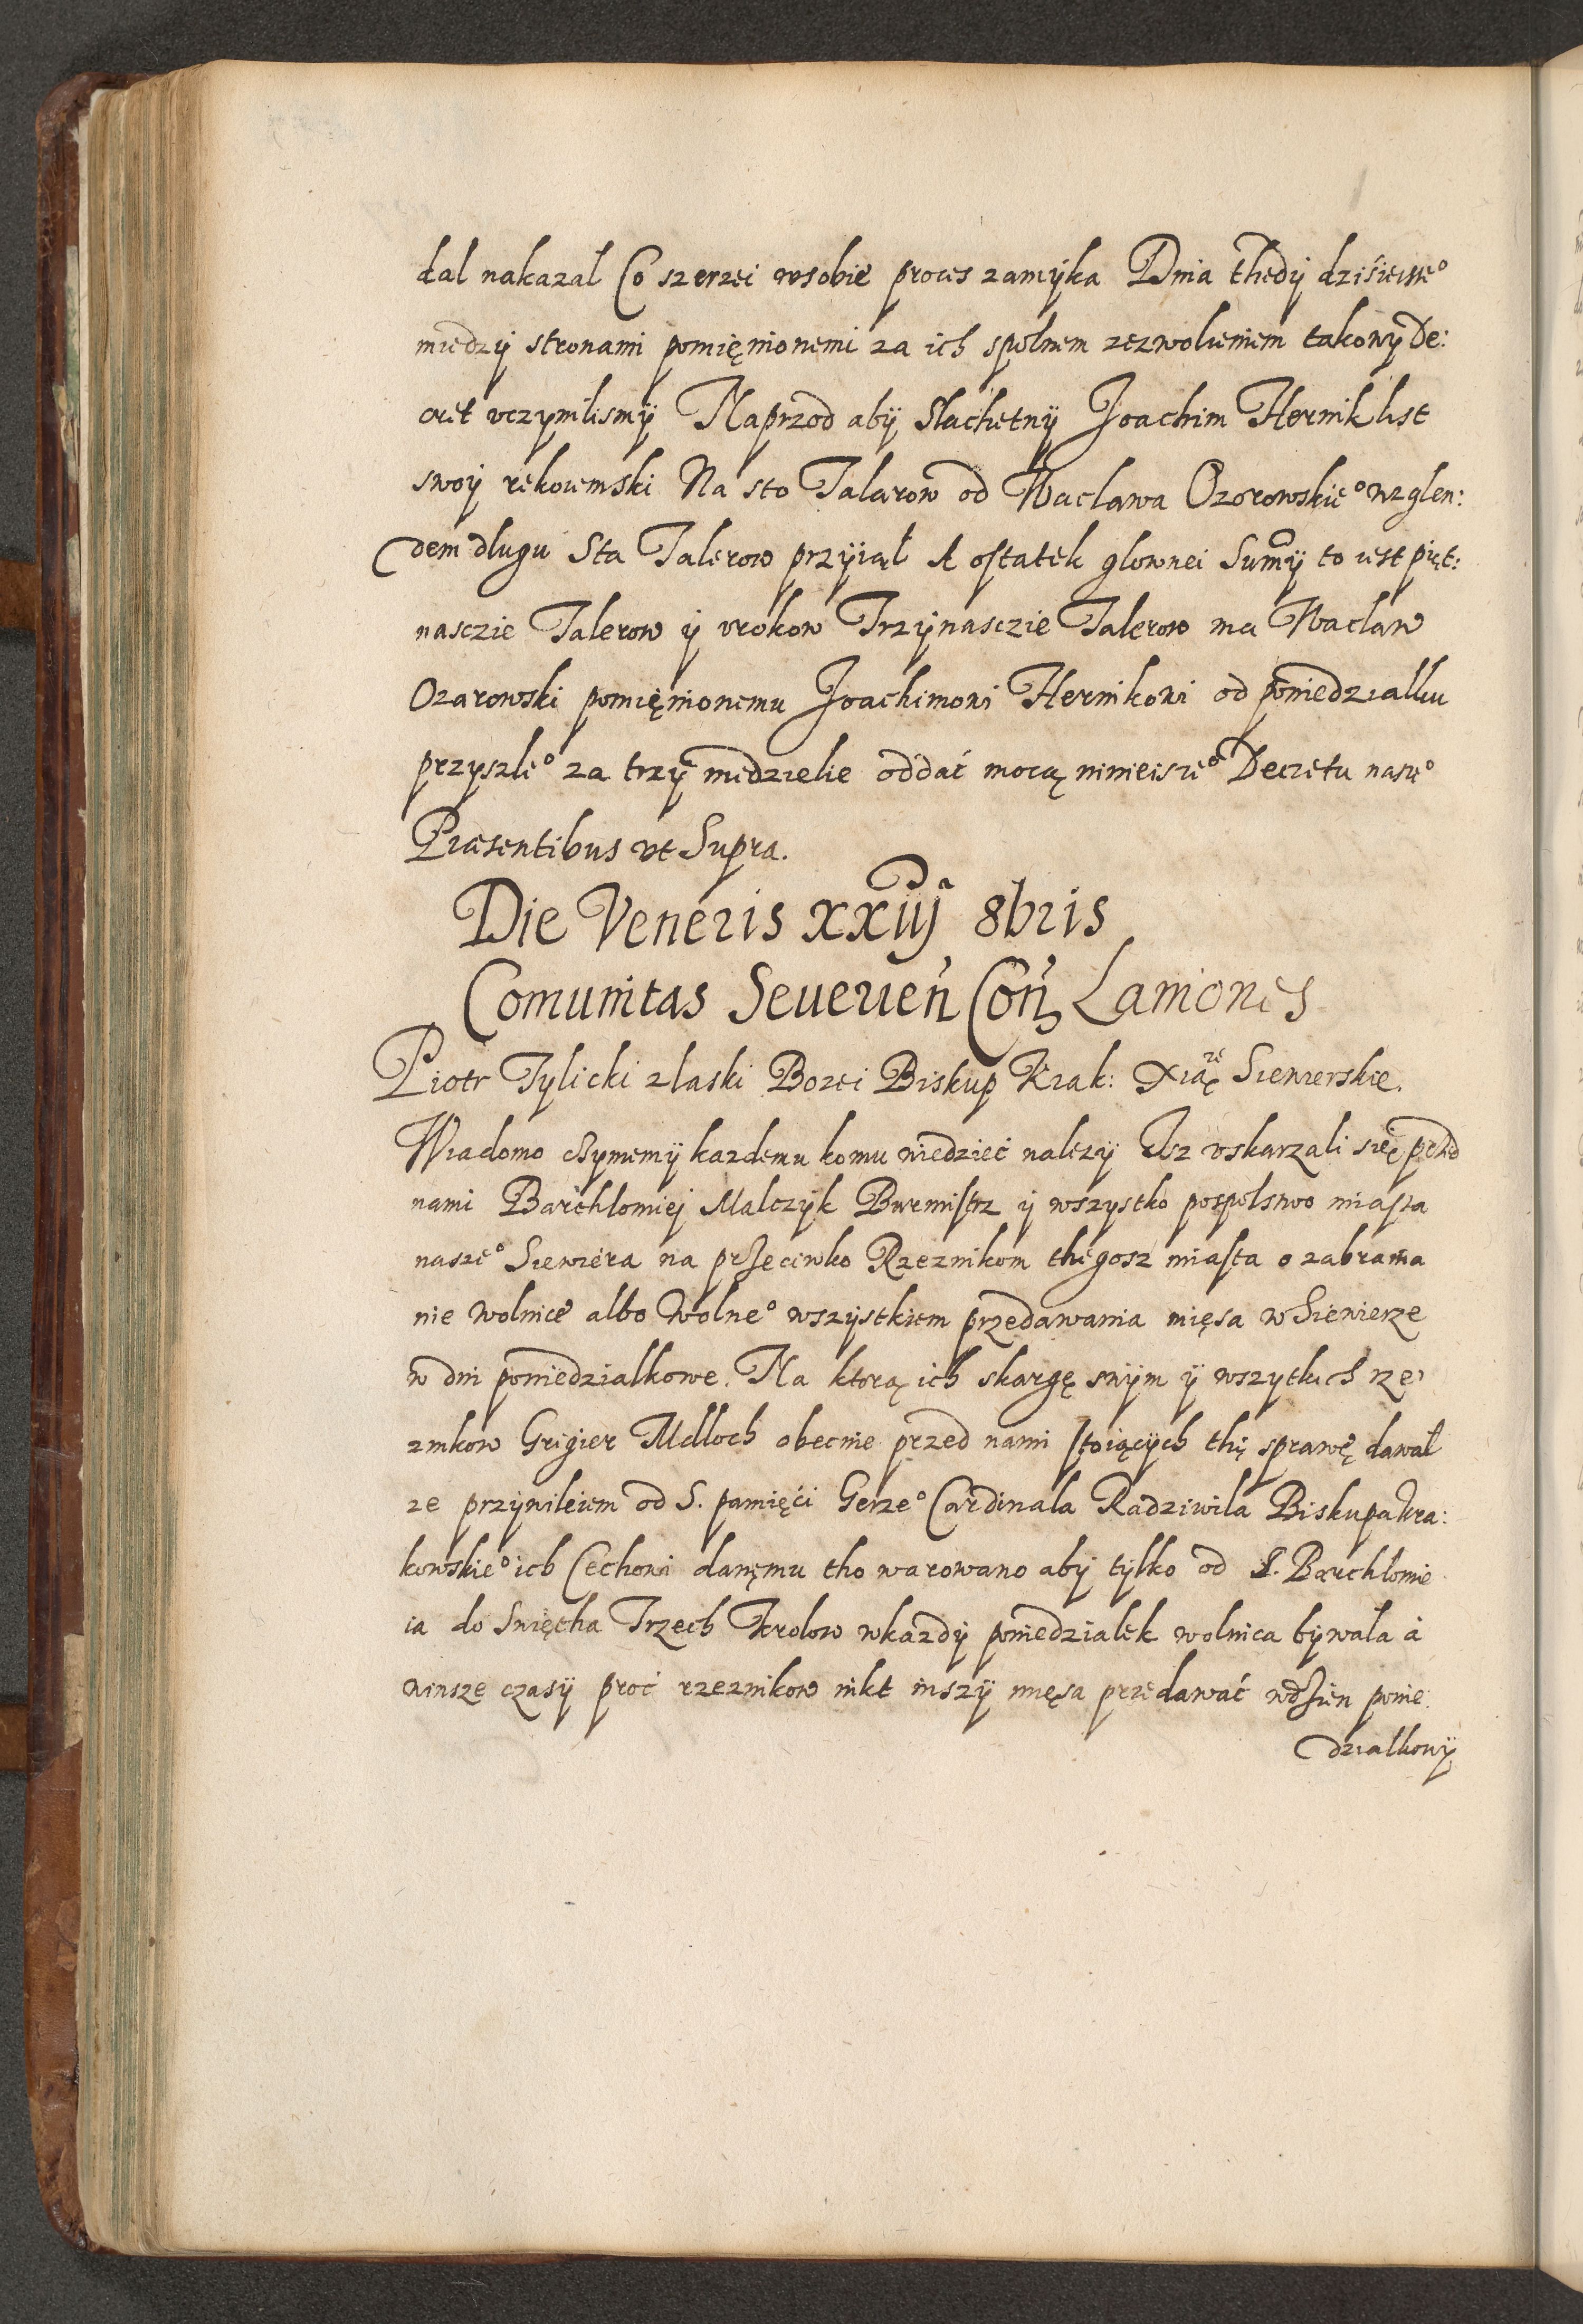 dal nakazal Co szerzei wsobie proces zamÿka Dnia thedÿ dzisieisze°
miedzÿ stronami pomięnionemi za ich spolnem zezwoleniem takowÿ De:
cret vczynilismÿ Naprzod abÿ Slachetnÿ Joachim Hernik list
swoÿ rekoiemski Na sto Talarow od Waclawa Ozorowskie° wzglen:
dem dlugu Sta Talerow przÿiął A ostatek glownei Sumÿ to iest pięt:
nasczie Talerow ÿ vrokow Trzÿnasczie Talerow ma Waclaw
Ozarowski pomięnionemu Joachimowi Hernikowi od poniedzialku
przyszle° za trzÿ niedzielie oddać mocą ninieisze° Decretu nasze°
Præsentibus vt Supra.
Die Veneris xxiijª 8bris
Comunitas Seuerień Coń Laniones
Piotr Tylicki zlaski Bozei Biskup Krak: Xiążę Siewierskie.
Wiadomo czynemÿ kazdemu komu wiedzieć nalezÿ Isz vskarzali się przed
nami Barthlomiej Malczÿk Burmistrz ÿ wszystko pospolstwo miasta
nasze° Siewiera na przeciwko Rzeznikom thegosz miasta o zabrania
nie wolnice albo Wolne° wszÿstkiem przedawania mięsa w Siewierze
w dni poniedzialkowe. Na ktorą ich skargę swÿm ÿ wszytkich rze,
znikow Grigier Melloch obecnie przed nami stoiącÿch thę sprawę dawał
ze przÿwileiem od S. pamięći Gerze° Cardinala Radziwila Biskupa kra:
kowskie° ich Cechowi danęmu tho warowano abÿ tÿlko od S. Barthlomie
ia do Swiętha Trzech Krolow wkazdÿ poniedzialek wolnica bÿwala à
winsze czasÿ proć rzeznikow nikt inszÿ mięsa przedawać wdzien ponie
dzialkowÿ